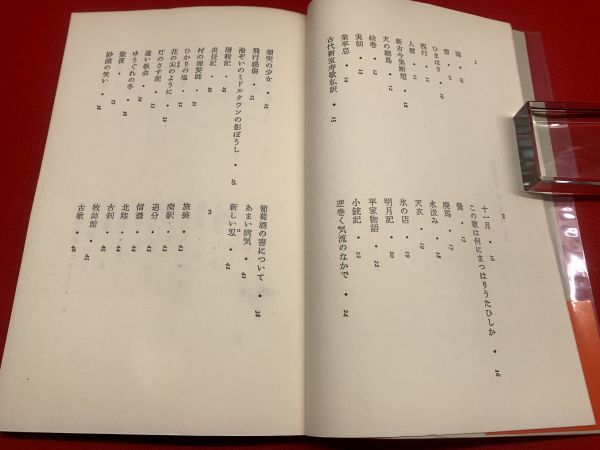 1
ひまはり • 9
西行
人麿 • 11
新古今集断想 • 12
絵巻
実朝 • 14
業平忌 • 14
古代新室寿歌私訳 • 15
2
十一月
この歌は何にまつはりうたひしか • 16
廃馬 • 17
水汲み • 18
天衣 • 19
氷の店 • 20
明月記 • 20
平家物語 • 22
小銃記 • 22
逆巻く気流のなかで • 24
の少女 • 25
飛行感傷 • 25
池ぞいのミドルタウンの影ぼうし • 26
屠殺記 • 29
炎昼記 • 30
村の理髪師 • 31
ひかりの塩
花の尖のように
灯のさす泥
遠い教会
ゆうぐれの冬
聖夜 • 37
砂漠の笑い • 38
葡萄酒の害について • 38
あまい病気 • 41
新しい刃 • 42
3
旅装
廃駅 • 43
追分 • 44
信濃 • 44
北陸 • 44
古刹 • 45
牧師館 • 45
古歌 • 46